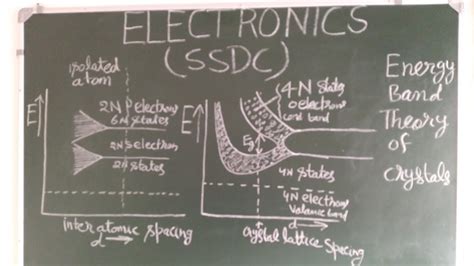 ELECTRONICS
(SSDC)
isolated
atom
E
2N electron
6N states
2N electron
2N states
interatomic spacing
d
4N states
0 electrons
cond band
E
Eg
4N states
4N electron
Valance band
d
crystal lattice spacing
Energy
Band
Theory
of
crystals